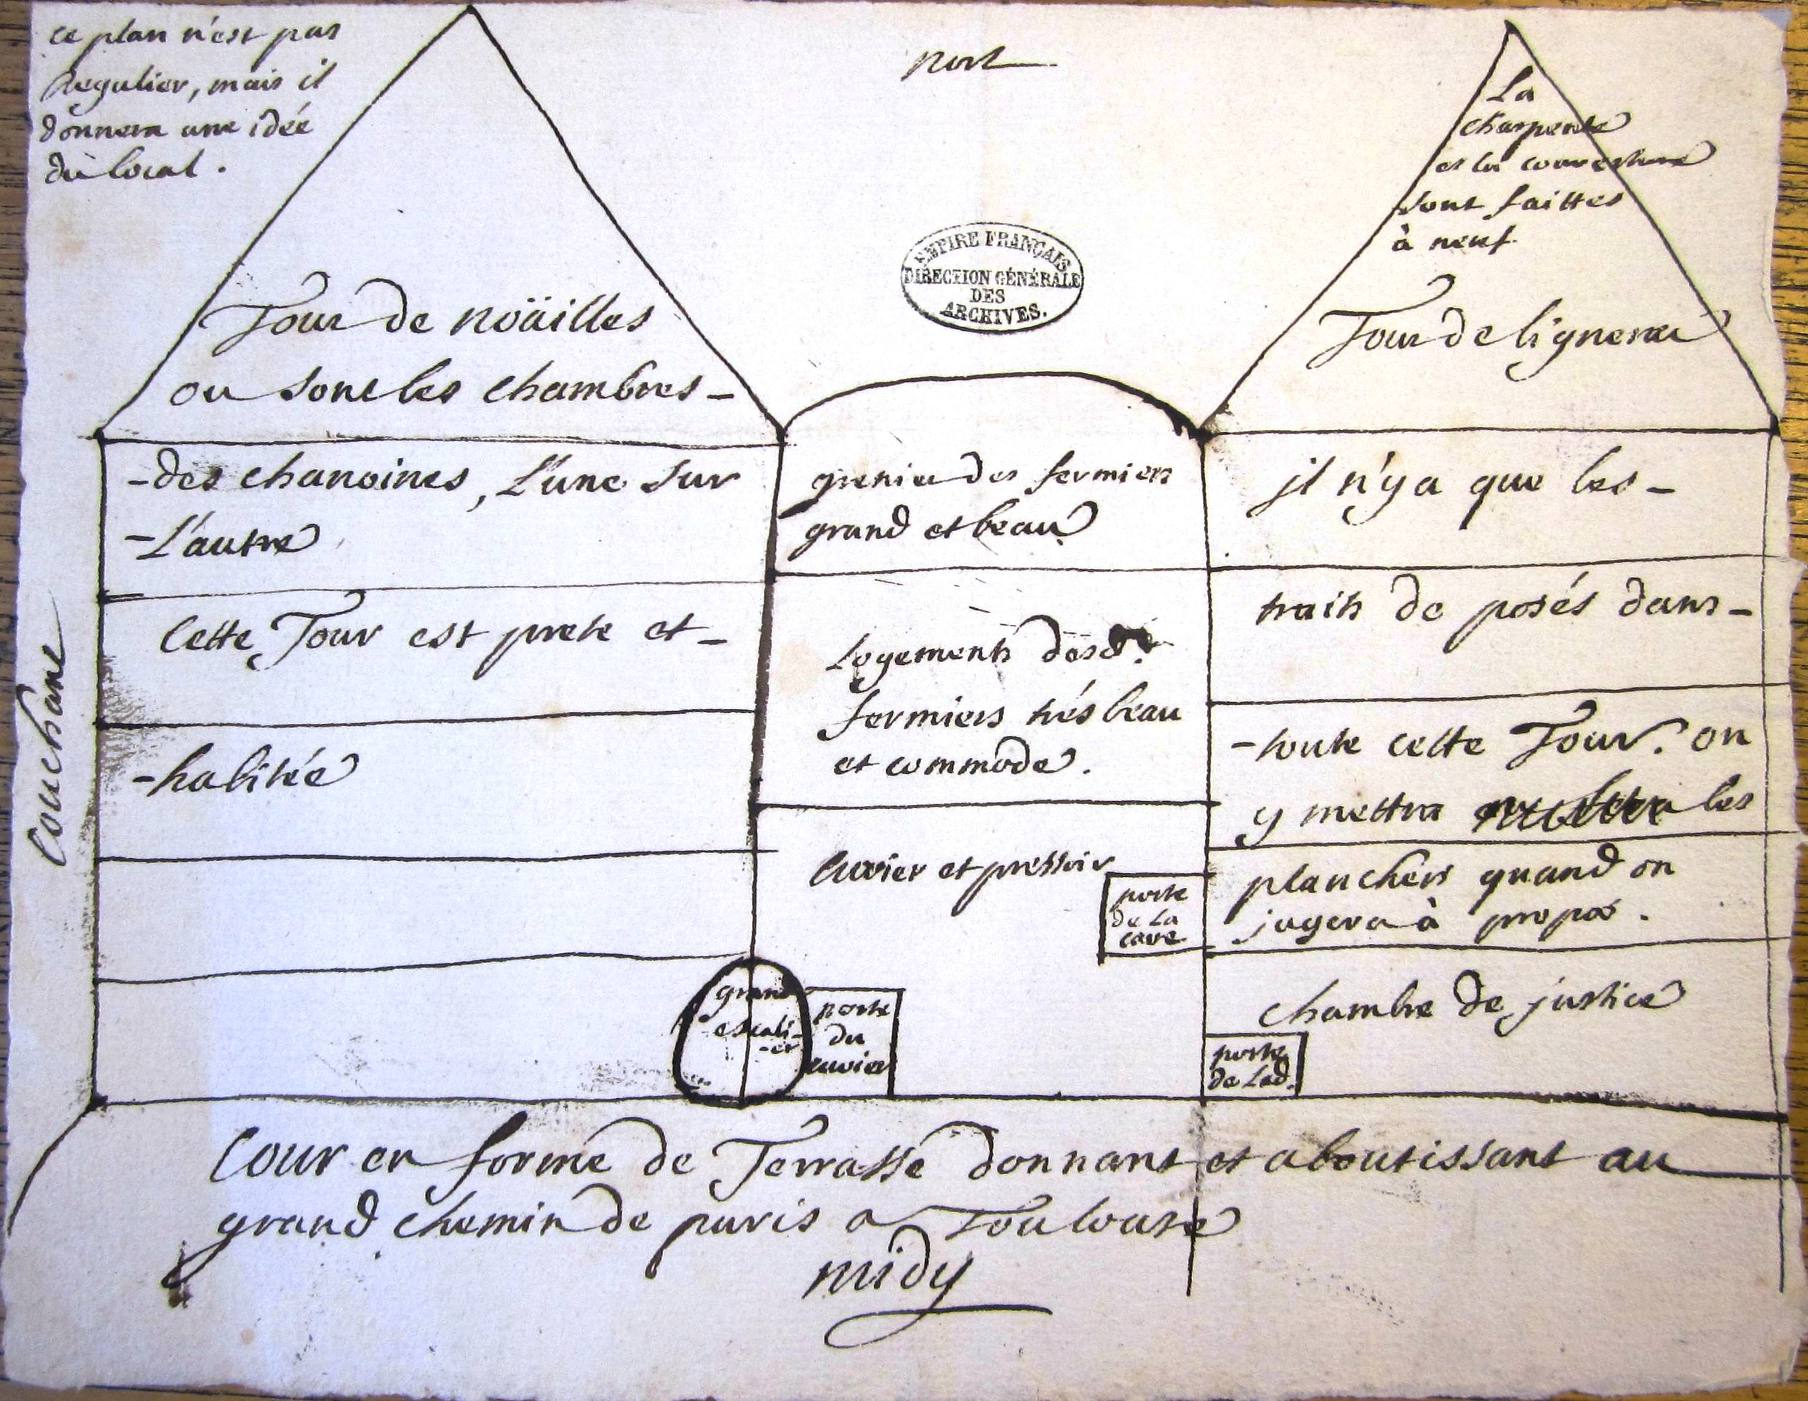 ce plan n'est pas
Regulier, mais il
donnera une idée
du local.
nort
La
charpente
et la couverture
sont faittes
à neuf
EMPIRE FRANÇAIS
DIRECTION GÉNÉRALE
DES
ARCHIVES.
Tour de nöäilles
ou sont les chambres-
-des chanoines, L'une sur
-L'autre
Cette Tour est prete et-
-habitée
Couchant
grenier des fermiers
grand et beau
Logements desd.
fermiers trés beau
et commode.
Cuvier et pressoir
porte
de La
cave
grand
escali-
-er
porte
du
cuvier
Tour de lignerac
jl n'y a que les-
traits de posés dans-
-toute cette Tour. on
y mettra les
planchers quand on
jugera à propos.
chambre de justice
porte
de Lad.
Cour en forme de Terrasse donnant et aboutissant au
grand chemin de paris a Toulouse
midy